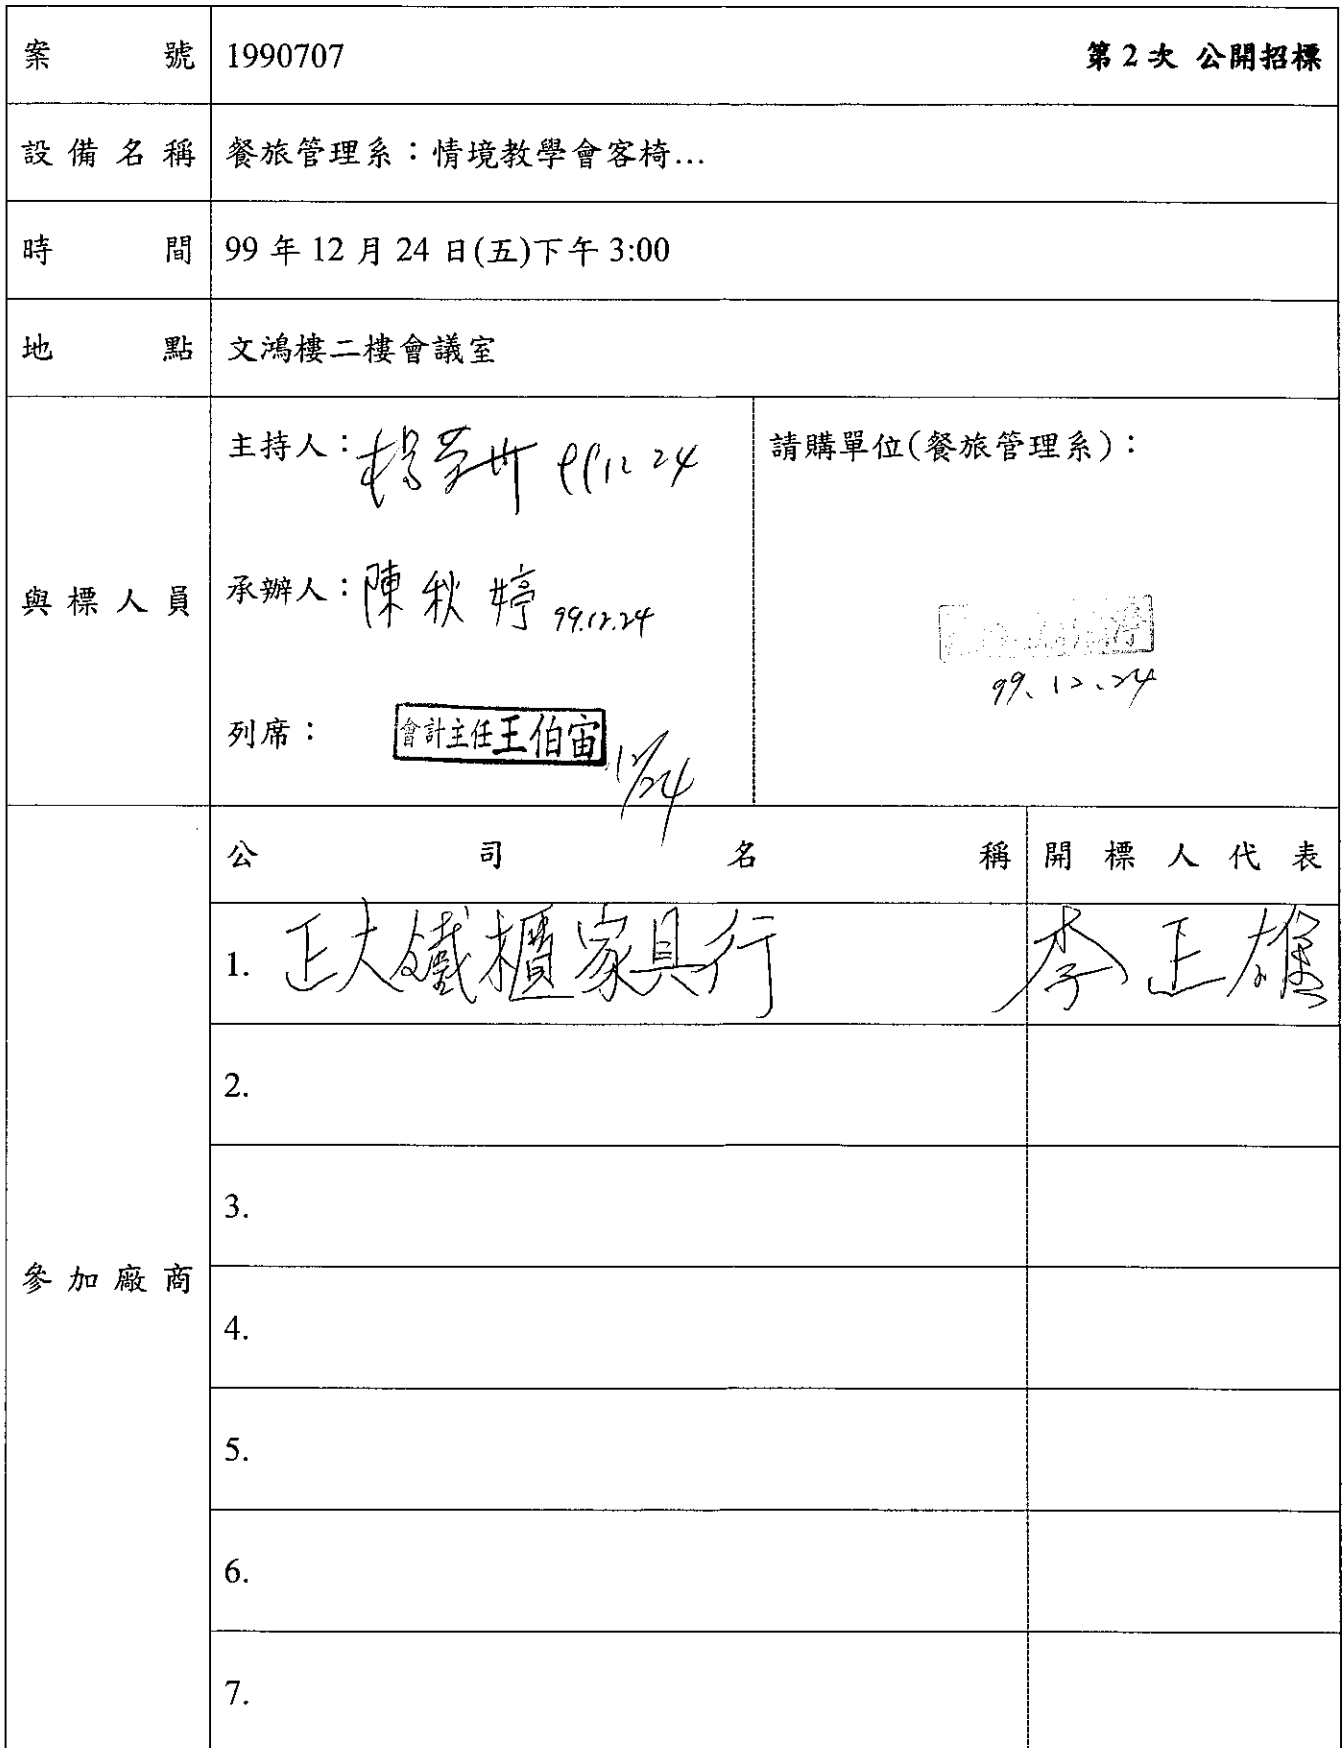 案號 1990707 第2次 公開招標
設備名稱 餐旅管理系：情境教學會客椅...
時間 99 年 12 月 24 日(五)下午 3:00
地點 文鴻樓二樓會議室
與標人員
主持人： 99 12 24
承辦人：陳秋婷 99.12.24
列席： 會計主任王伯宙 12/24
請購單位(餐旅管理系)：
99.12.24
參加廠商
公司名稱 開標人代表
1. 正大鐵櫃家具行 李正雄
2.
3.
4.
5.
6.
7.